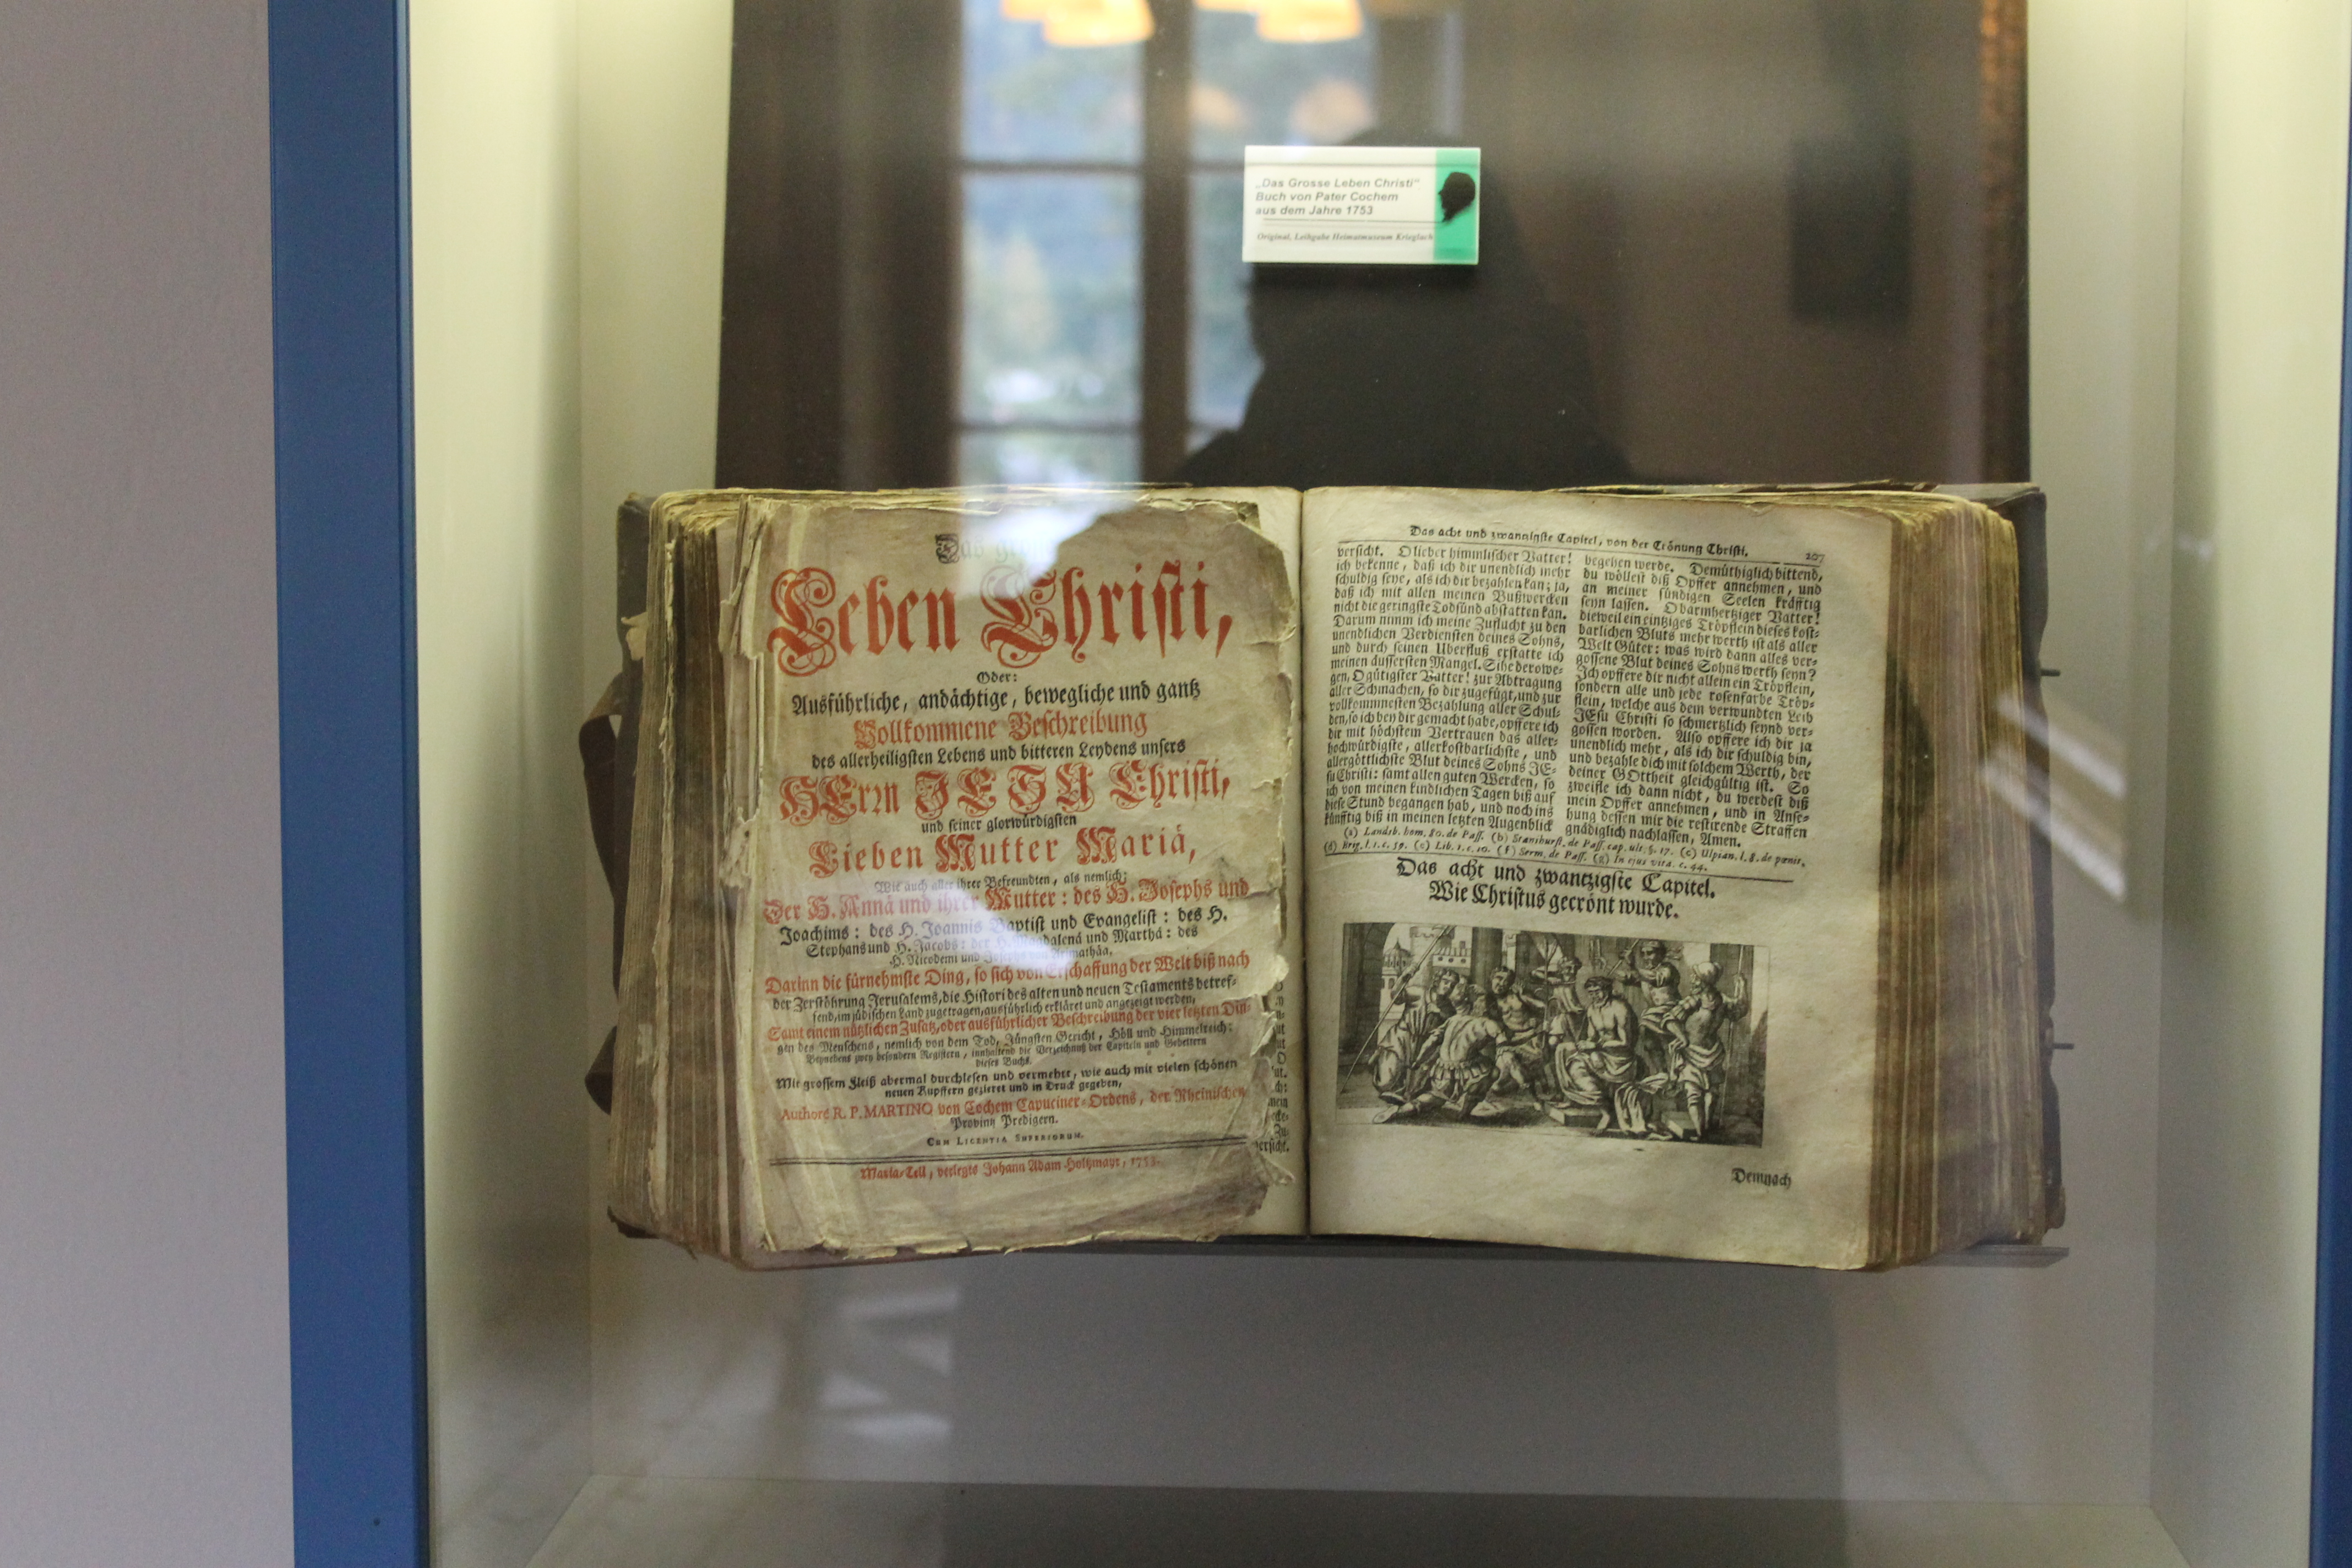 „Das Grosse Leben Christi“
Buch von Pater Cochem
aus dem Jahre 1753
Original, Leihgabe Heimatmuseum Krieglach
Das
Leben Christi,
Oder:
Ausführliche, andächtige, bewegliche und gantz
Vollkommene Beschreibung
des allerheiligsten Lebens und bitteren Leydens unsers
HErrn JESU Christi,
und seiner glorwürdigsten
Lieben Mutter Mariä,
Wie auch aller ihrer Befreundten, als nemlich:
Der H. Annä und ihrer Mutter: des H. Josephs und
Joachims: des H. Joannis Baptist und Evangelist: des H.
Stephans und H. Jacobs: der H. Magdalenä und Marthä: des
H. Nicodemi und Josephs von Arimathäa,
Darinn die fürnehmste Ding, so sich von Erschaffung der Welt biß nach
der Zerstöhrung Jerusalems, die Histori des alten und neuen Testaments betref-
fend, im jüdischen Land zugetragen, ausführlich erkläret und angezeigt werden,
Samt einem nützlichen Zusatz, oder ausführlicher Beschreibung der vier letzten Din-
gen des Menschens, nemlich von dem Tod, Jüngsten Gericht, Höll und Himmelreich:
Beynebens zwey besondern Registern, innhaltend die Verzeichnuß der Capiteln und Gebettern
dieses Buchs.
Mit grossem Fleiß abermal durchlesen und vermehrt, wie auch mit vielen schönen
neuen Kupffern gezieret und in Druck gegeben,
Authore R. P. MARTINO von Cochem Capuciner-Ordens, der Rheinischen
Provintz Predigern.
CUM LICENTIA SUPERIORUM.
Maria-Cell, verlegts Johann Adam Holtzmayr, 1753.
Das acht und zwantzigste Capitel, von der Crönung Christi. 207
versicht. O lieber himmlischer Vatter!
ich bekenne, daß ich dir unendlich mehr
schuldig seye, als ich dir bezahlen kan; ja,
daß ich mit allen meinen Bußwercken
nicht die geringste Todsünd abstatten kan.
Darum nimm ich meine Zuflucht zu den
unendlichen Verdiensten deines Sohns,
und durch seinen Uberfluß erstatte ich
meinen äussersten Mangel. Sihe derowe-
gen, O gütigster Vatter! zur Abtragung
aller Schmachen, so dir zugefügt, und zur
vollkommnesten Bezahlung aller Schul-
den, so ich bey dir gemacht habe, opffere ich
dir mit höchstem Vertrauen das aller-
hochwürdigste, allerkostbarlichste, und
allergöttlichste Blut deines Sohns JE-
su Christi: samt allen guten Wercken, so
ich von meinen kindlichen Tagen biß auf
diese Stund begangen hab, und noch ins
künfftig biß in meinen letzten Augenblick
begehen werde. Demüthiglich bittend,
du wöllest diß Opffer annehmen, und
an meiner sündigen Seelen kräfftig
seyn lassen. O barmhertziger Vatter!
dieweil ein eintziges Tröpflein dieses kost-
barlichen Bluts mehr werth ist als aller
Welt Güter: was wird dann alles ver-
gossene Blut deines Sohns werth seyn?
Ich opffere dir nicht allein ein Tröpflein,
sondern alle und jede rosenfarbe Tröp-
flein, welche aus dem verwundten Leib
JEsu Christi so schmertzlich seynd ver-
gossen worden. Also opffere ich dir ja
unendlich mehr, als ich dir schuldig bin,
und bezahle dich mit solchem Werth, der
deiner GOttheit gleichgültig ist. So
zweifle ich dann nicht, du werdest diß
mein Opffer annehmen, und in Anse-
hung dessen mir die restirende Straffen
gnädiglich nachlassen, Amen.
(a) Landsb. hom. 80. de Pass. (b) Stanihurst. de Pass. cap. ult. §. 17. (c) Ulpian. l. 8. de pœnis.
(d) Brig. l. 1. c. 59. (e) Lib. 1. c. 10. (f) Serm. de Pass. (g) In ejus vita. c. 44.
Das acht und zwantzigste Capitel.
Wie Christus gecrönt wurde.
Demnach